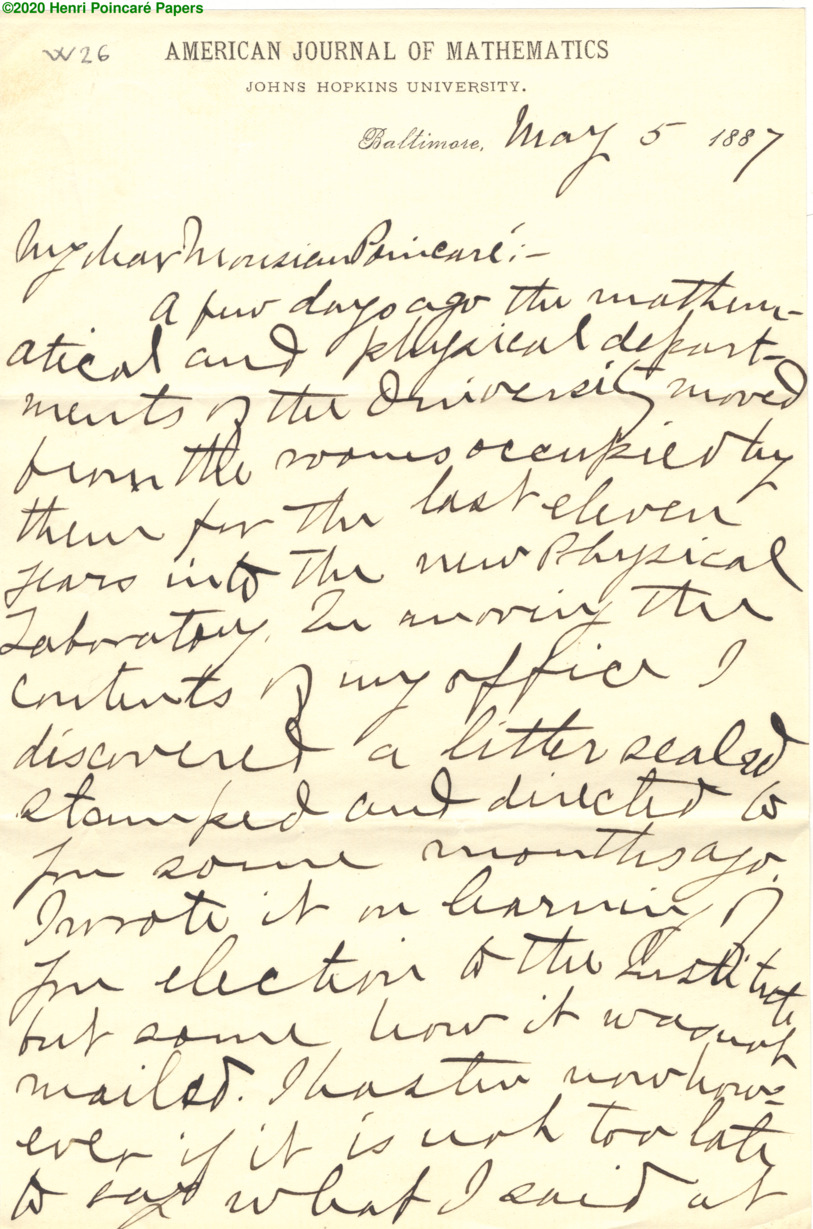 ©2020 Henri Poincaré Papers
W26
AMERICAN JOURNAL OF MATHEMATICS
JOHNS HOPKINS UNIVERSITY.
Baltimore, May 5 1887
My dear Monsieur Poincaré:–
A few days ago the mathem-
atical and physical depart-
ments of the University moved
from the rooms occupied by
them for the last eleven
years into the new Physical
Laboratory. In moving the
contents of my office I
discovered a letter sealed
stamped and directed to
you some months ago.
I wrote it on learning of
your election to the Institute
but some how it was not
mailed. I hasten now how-
ever if it is not too late
to say what I said at